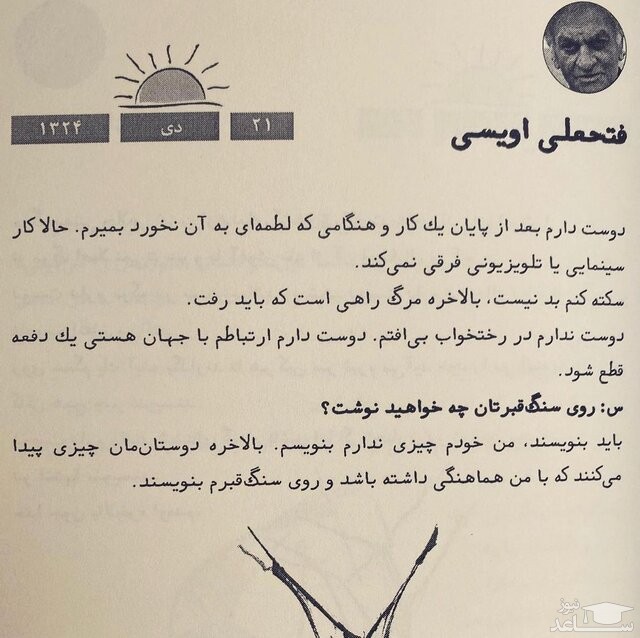 فتحعلی اویسی
۲۱ دی ۱۳۲۴
دوست دارم بعد از پایان یك کار و هنگامی که لطمه‌ای به آن نخورد بمیرم. حالا کار
سینمایی یا تلویزیونی فرقی نمی‌کند.
سکته کنم بد نیست، بالاخره مرگ راهی است که باید رفت.
دوست ندارم در رختخواب بی‌افتم. دوست دارم ارتباطم با جهان هستی یك دفعه
قطع شود.
س: روی سنگ‌قبرتان چه خواهید نوشت؟
باید بنویسند، من خودم چیزی ندارم بنویسم. بالاخره دوستان‌مان چیزی پیدا
می‌کنند که با من هماهنگی داشته باشد و روی سنگ‌قبرم بنویسند.
نیوز
ساعد